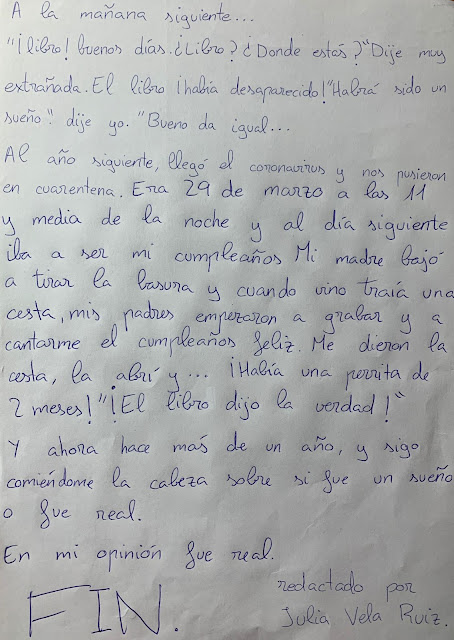 A la mañana siguiente...
"¡libro! buenos días. ¿Libro? ¿Donde estás?" Dije muy
extrañada. El libro ¡había desaparecido! "Habrá sido un
sueño". dije yo. "Bueno da igual...
Al año siguiente, llegó el coronavirus y nos pusieron
en cuarentena. Era 29 de marzo a las 11
y media de la noche y al día siguiente
iba a ser mi cumpleaños Mi madre bajó
a tirar la basura y cuando vino traía una
cesta, mis padres empezaron a grabar y a
cantarme el cumpleaños feliz. Me dieron la
cesta, la abrí y... ¡Había una perrita de
2 meses! "¡El libro dijo la verdad!"
Y ahora hace más de un año, y sigo
comiéndome la cabeza sobre si fue un sueño
o fue real.
En mi opinión fue real.
FIN.
redactado por
Julia Vela Ruiz.